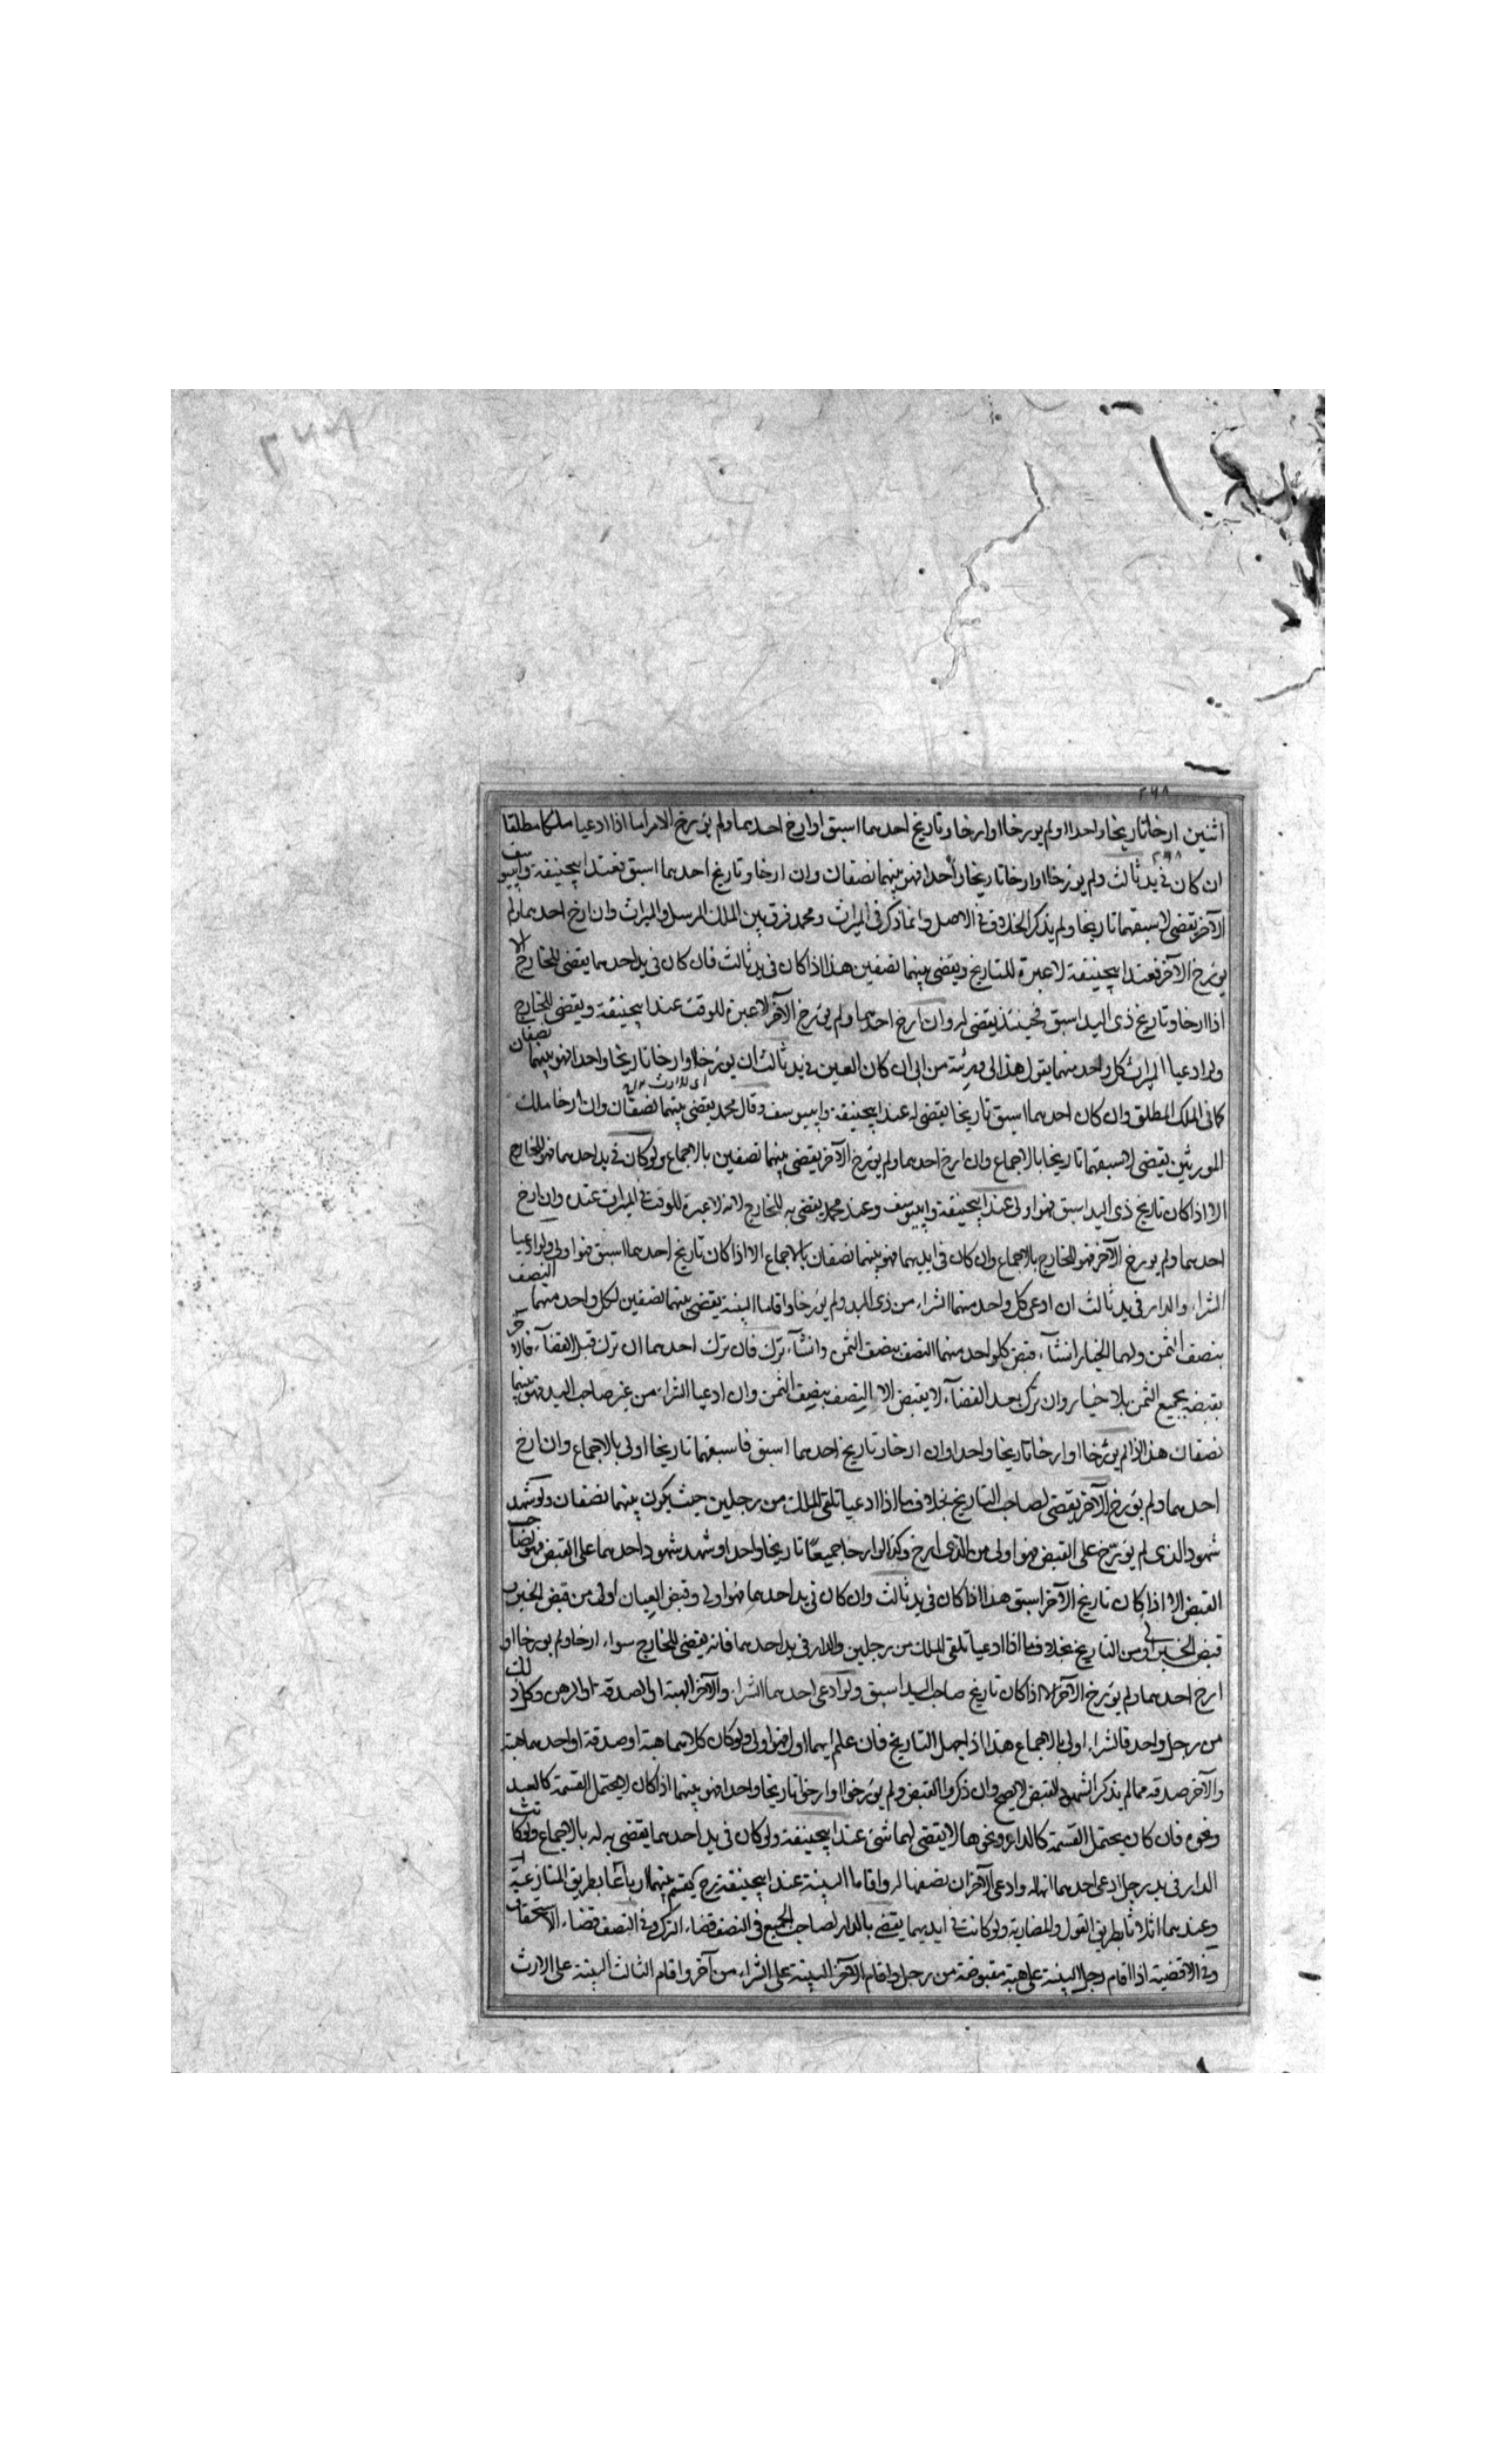 اثنين ارخا تاريخا واحدا او لم يورخا او ارخا وتاريخ احدهما اسبق او ارخ احدهما ولم يؤرخ الاخر اما اذا ادعيا ملكا مطلقا
ان كان في يد ثالث ولم يؤرخا او ارخا تاريخا واحدا فهو بينهما نصفان وان ارخا وتاريخ احدهما اسبق فعند ابيحنيفة وابيوسف
الآخر يقضى لاسبقهما تاريخا ولم يذكر الخلاف في الاصل وانما ذكر في الميراث ومحمد فرق بين الملك المرسل والميراث وان ارخ احدهما ولم
يؤرخ الآخر فعند ابيحنيفة لا عبرة للتاريخ ويقضى بينهما نصفين هذا اذا كان في يد ثالث فان كان في يد احدهما يقضى للخارج الا
اذا ارخا وتاريخ ذى اليد اسبق فحينئذ يقضى له وان ارخ احدهما ولم يؤرخ الآخر لا عبرة للوقت عند ابيحنيفة ويقضى للخارج
ولو ادعيا الميراث كل واحد منهما يقول هذا لى ورثته من ابى ان كان العين في يد ثالث ان لم يؤرخا او ارخا تاريخا واحدا فهو بينهما نصفان
كما فى الملك المطلق وان كان احدهما اسبق تاريخا يقضى له عند ابيحنيفة وابييوسف وقال محمد يقضى بينهما نصفان وان ارخا ملك
المورثين يقضى لاسبقهما تاريخا بالاجماع وان ارخ احدهما ولم يؤرخ الآخر يقضى بينهما نصفين بالاجماع ولو كان في يد احدهما فهو للخارج
الا اذا كان تاريخ ذى اليد اسبق فهو اولى عند ابيحنيفة وابييوسف وعند محمد يقضى به للخارج لانه لا عبرة للوقت في الميراث عنده وان ارخ
احدهما ولم يورخ الآخر فهو للخارج بالاجماع وان كان في ايديهما فهو بينهما نصفان بالاجماع الا اذا كان تاريخ احدهما اسبق فهو اولى ولو ادعيا
الشراء والدار في يد ثالث ان ادعى كل واحد منهما الشراء من ذى اليد ولم يؤرخا واقاما البينة يقضى بينهما نصفين لكل واحد منهما النصف
بنصف الثمن ولهما الخيار انشآء قبض كلواحد منهما النصف بنصف الثمن وانشآء ترك فان ترك احدهما ان ترك قبل القضآء فللآخر
يقبضه بجميع الثمن بلا خيار وان ترك بعد القضآء لا يقبض الا النصف بنصف الثمن وان ادعيا الشراء من غير صاحب اليد فهو بينهما
نصفان هذا اذا لم يؤرخا او ارخا تاريخا واحدا وان ارخا وتاريخ احدهما اسبق فاسبقهما تاريخا اولى بالاجماع وان ارخ
احدهما ولم يؤرخ الآخر يقضى لصاحب التاريخ بخلاف ما اذا ادعيا تلقى الملك من رجلين حيث يكون بينهما نصفان ولو شهد
شهود الذى لم يؤرخ على القبض فهو اولى من الذى ارخ وكذا لو ارخا جميعا تاريخا واحدا وشهد شهود احدهما على القبض فهو لصاحب
القبض الا اذا كان تاريخ الآخر اسبق هذا اذا كان في يد ثالث وان كان في يد احدهما فهو اولى وقبض العيان اولى من قبض الخبر
قبض الخبر اولى من التاريخ بخلاف ما اذا ادعيا تلقى الملك من رجلين والدار في يد احدهما فانه يقضى للخارج سواء ارخا ولم يورخا او
ارخ احدهما ولم يؤرخ الآخر الا اذا كان تاريخ صاحب اليد اسبق ولو ادعى احدهما الشراء والآخر الهبة او الصدقة او الرهن وكل ذلك
من رجل واحد فالشراء اولى بالاجماع هذا اذا جهل التاريخ فان علم ايهما اول فهو اولى ولو كان كلاهما هبة او صدقة او احدهما هبة
والآخر صدقة فما لم يذكر الشهود القبض لا يصح وان ذكروا القبض ولم يؤرخوا او ارخوا تاريخا واحدا فهو بينهما اذا كان لا يحتمل القسمة كالعبد
ونحوه فان كان يحتمل القسمة كالدار ونحوها لا يقضى لهما شئ عند ابيحنيفة ولو كان في يد احدهما يقضى به له بالاجماع ولو كانت
الدار في يد رجل ادعى احدهما انها له وادعى الآخر ان نصفها له واقاما البينة عند ابيحنيفة رح يقسم بينهما ارباعا بطريق المنازعة
وعندهما اثلاثا بطريق العول والمضاربة ولو كانت في ايديهما يقضى بالدار لصاحب الجميع في النصف قضاء الترك وفي النصف قضاء الاستحقاق
وفي الاقضية اذا اقام رجل البينة على هبة مقبوضة من رجل واقام الآخر البينة على الشراء من آخر واقام الثالث البينة على الارث